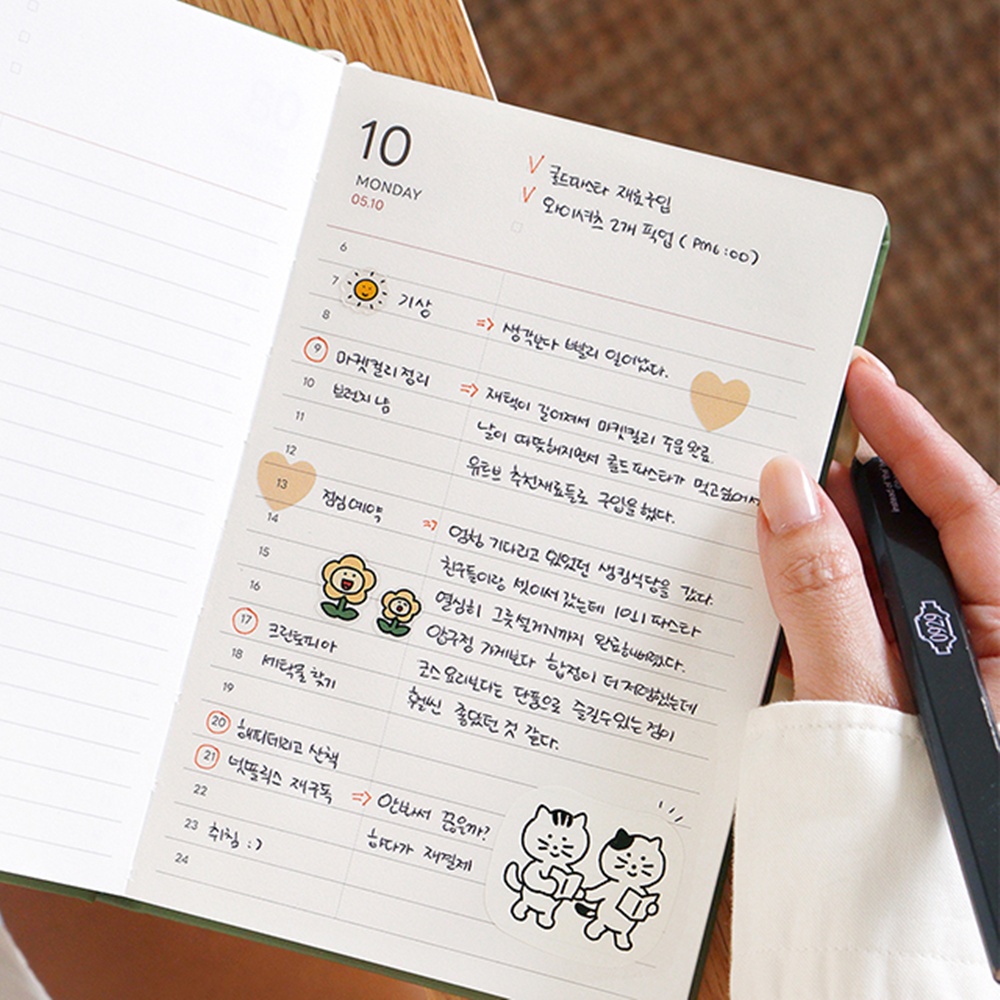 10
MONDAY
05.10
콜드파스타 재료구입
와이셔츠 2개 픽업 ( PM6:00)
6
7 기상
⇒ 생각보다 빨리 일어났다.
8
9 마켓컬리 정리
⇒ 재택이 길어져서 마켓컬리 주문완료.
10 브런치 냠
날이 따뜻해지면서 콜드파스타가 먹고싶어서
11
유튜브 추천재료들로 구입을 했다.
12
13 점심예약
⇒ 엄청 기다리고 있었던 생킴식당을 갔다.
14
친구들이랑 셋이서 갔는데 1인 1 파스타
15
열심히 그릇설거지까지 완료해버렸다.
16
압구정 가게보다 합정이 더 저렴했는데
17 크린토피아
코스요리보다는 단품으로 즐길수있는 점이
18 세탁물 찾기
훨씬 좋았던 것 같다.
19
20 해피데리고 산책
21 넷플릭스 재구독
⇒ 안봐서 끊을까?
22
하다가 재결제
23 취침 :)
24
6760